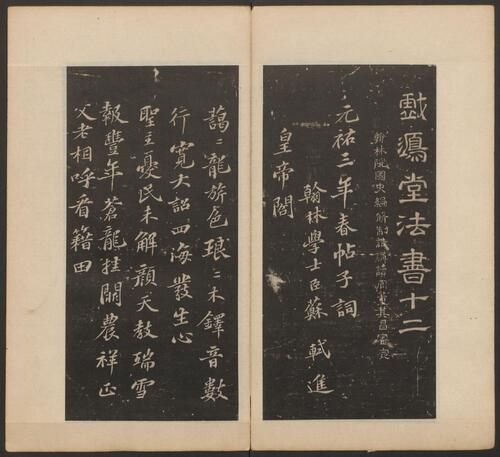 戲鴻堂法書十二
翰林院國史編修制誥講讀官董其昌審定
元祐三年春帖子詞
翰林學士臣蘇軾進
皇帝閣
藹〻龍旂色琅〻木鐸音數
行寬大詔四海發生心
聖主憂民未解顏天教瑞雪
報豐年蒼龍挂闕農祥正
父老相呼看籍田